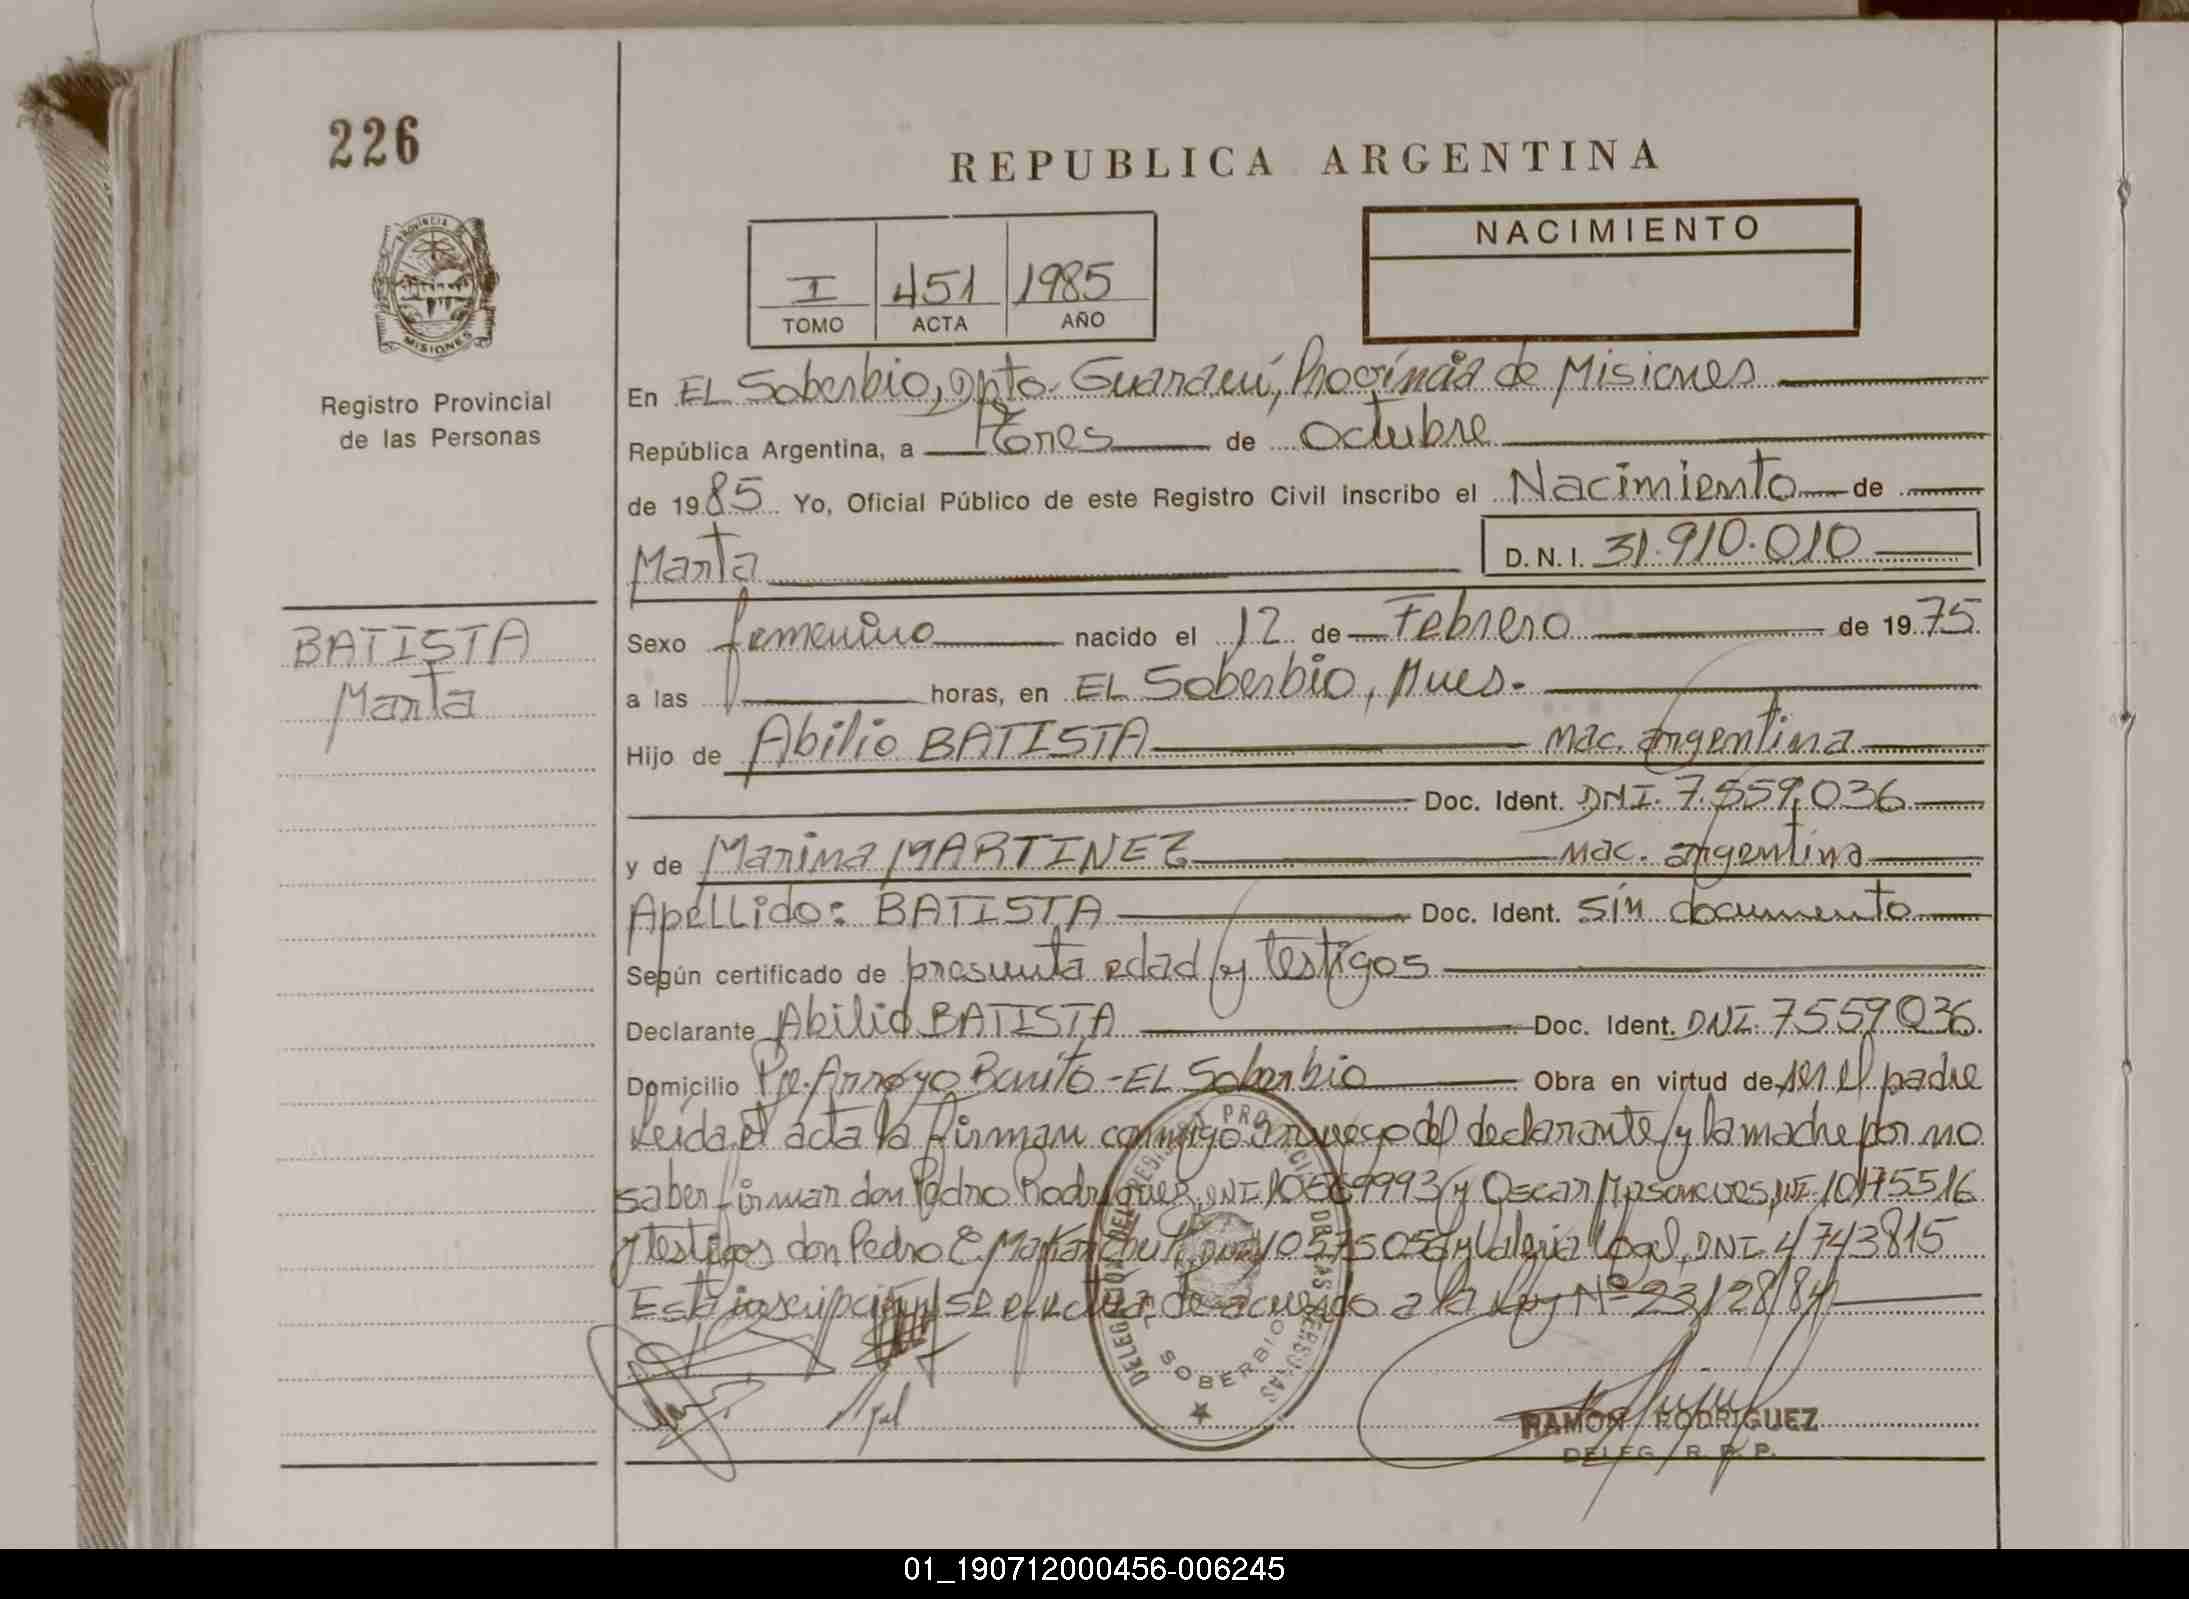 226
REPUBLICA ARGENTINA
PROVINCIA DE
MISIONES
Registro Provincial
de las Personas
I 451 1985
TOMO ACTA AÑO
NACIMIENTO
En EL Soberbio, Dpto. Guaraní, Provincia de Misiones
República Argentina, a Tres de Octubre
de 1985 Yo, Oficial Público de este Registro Civil inscribo el Nacimiento de
Marta D.N.I. 31.910.010
BATISTA
Marta
Sexo femenino nacido el 12 de Febrero de 1975
a las horas, en EL Soberbio, Mnes.
Hijo de Abilio BATISTA nac. argentina
Doc. Ident. DNI. 7.559.036
y de Marina MARTINEZ nac. argentina
Apellido: BATISTA Doc. Ident. sin documento
Según certificado de presunta edad y testigos
Declarante Abilio BATISTA Doc. Ident. DNI. 7559036
Domicilio Pje. Arroyo Bonito - EL Soberbio Obra en virtud de ser el padre
Leida el acta la firman conmigo a ruego del declarante y la madre por no
saber firmar don Pedro Rodriguez, DNI 10569993 y Oscar DNI 10175516
y testigos don Pedro E. DNI 10575056 y Valeria DNI 4743815
Esta inscripción se efectua de acuerdo a la Ley Nº 23128/84
DELEGACION DEL REGISTRO PROVINCIAL DE LAS PERSONAS
SOBERBIO
RAMON RODRIGUEZ
DELEG. R. P. P.
01_190712000456-006245